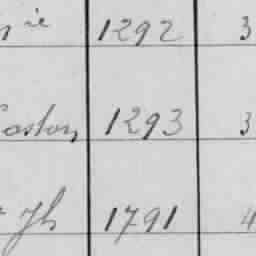 ie 1292 3
aston 1293 3
Jh 1791 4